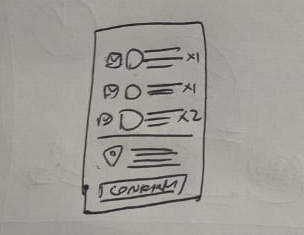 X1
X1
X2
CONFIRM